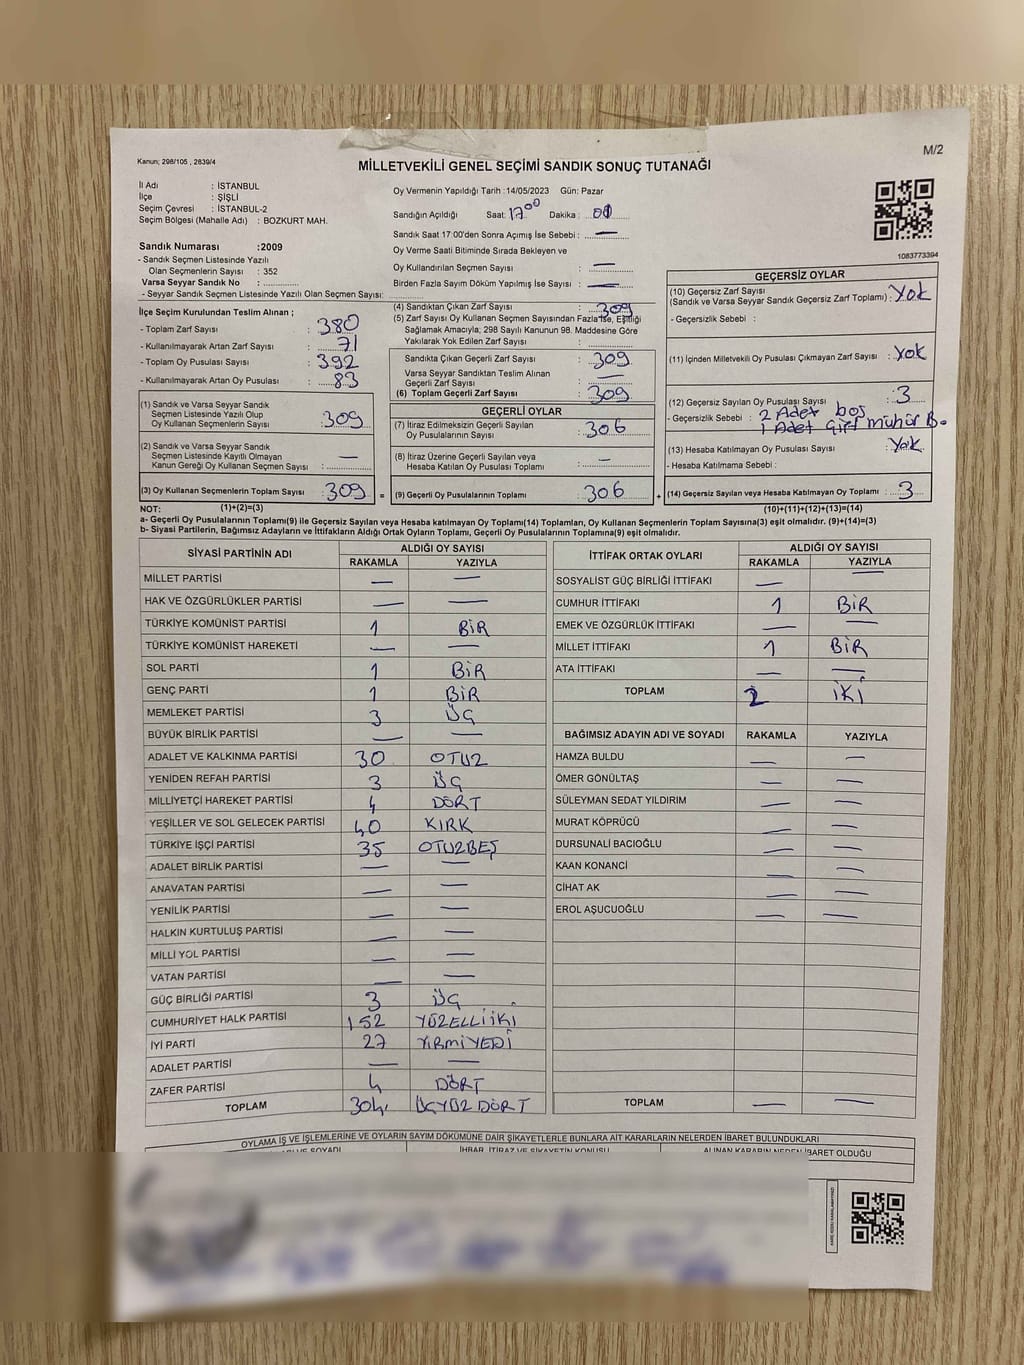 M/2
Kanun; 298/105 , 2839/4
MİLLETVEKİLİ GENEL SEÇİMİ SANDIK SONUÇ TUTANAĞI
İl Adı : İSTANBUL
İlçe : ŞİŞLİ
Seçim Çevresi : İSTANBUL-2
Seçim Bölgesi (Mahalle Adı) : BOZKURT MAH.
Sandık Numarası :2009
- Sandık Seçmen Listesinde Yazılı
Olan Seçmenlerin Sayısı : 352
Varsa Seyyar Sandık No :
- Seyyar Sandık Seçmen Listesinde Yazılı Olan Seçmen Sayısı:
Oy Vermenin Yapıldığı Tarih :14/05/2023 Gün: Pazar
Sandığın Açıldığı Saat: 17⁰⁰ Dakika :
Sandık Saat 17:00'den Sonra Açımış İse Sebebi : —
Oy Verme Saati Bitiminde Sırada Bekleyen ve
Oy Kullandırılan Seçmen Sayısı : —
Birden Fazla Sayım Döküm Yapılmış İse Sayısı : —
1083773394
İlçe Seçim Kurulundan Teslim Alınan ;
- Toplam Zarf Sayısı : 380
- Kullanılmayarak Artan Zarf Sayısı : 71
- Toplam Oy Pusulası Sayısı : 392
- Kullanılmayarak Artan Oy Pusulası : 83
(1) Sandık ve Varsa Seyyar Sandık
Seçmen Listesinde Yazılı Olup
Oy Kullanan Seçmenlerin Sayısı : 309
(2) Sandık ve Varsa Seyyar Sandık
Seçmen Listesinde Kayıtlı Olmayan
Kanun Gereği Oy Kullanan Seçmen Sayısı : —
(3) Oy Kullanan Seçmenlerin Toplam Sayısı : 309 =
(4) Sandıktan Çıkan Zarf Sayısı : 309
(5) Zarf Sayısı Oy Kullanan Seçmen Sayısından Fazla İse, Eşitliği
Sağlamak Amacıyla; 298 Sayılı Kanunun 98. Maddesine Göre
Yakılarak Yok Edilen Zarf Sayısı :
Sandıkta Çıkan Geçerli Zarf Sayısı : 309
Varsa Seyyar Sandıktan Teslim Alınan
Geçerli Zarf Sayısı : —
(6) Toplam Geçerli Zarf Sayısı : 309
GEÇERLİ OYLAR
(7) İtiraz Edilmeksizin Geçerli Sayılan
Oy Pusulalarının Sayısı : 306
(8) İtiraz Üzerine Geçerli Sayılan veya
Hesaba Katılan Oy Pusulası Toplamı : —
(9) Geçerli Oy Pusulalarının Toplamı : 306 +
GEÇERSİZ OYLAR
(10) Geçersiz Zarf Sayısı
(Sandık ve Varsa Seyyar Sandık Geçersiz Zarf Toplamı) : Yok
- Geçersizlik Sebebi :
(11) İçinden Milletvekili Oy Pusulası Çıkmayan Zarf Sayısı : Yok
(12) Geçersiz Sayılan Oy Pusulası Sayısı : 3
- Geçersizlik Sebebi : 2 Adet boş
1 Adet mühür B.
(13) Hesaba Katılmayan Oy Pusulası Sayısı : Yok
- Hesaba Katılmama Sebebi :
(14) Geçersiz Sayılan veya Hesaba Katılmayan Oy Toplamı : 3
NOT: (1)+(2)=(3) (10)+(11)+(12)+(13)=(14)
a- Geçerli Oy Pusulalarının Toplamı(9) ile Geçersiz Sayılan veya Hesaba katılmayan Oy Toplamı(14) Toplamları, Oy Kullanan Seçmenlerin Toplam Sayısına(3) eşit olmalıdır. (9)+(14)=(3)
b- Siyasi Partilerin, Bağımsız Adayların ve İttifakların Aldığı Ortak Oyların Toplamı, Geçerli Oy Pusulalarının Toplamına(9) eşit olmalıdır.
SİYASİ PARTİNİN ADI ALDIĞI OY SAYISI
RAKAMLA YAZIYLA
MİLLET PARTİSİ — —
HAK VE ÖZGÜRLÜKLER PARTİSİ — —
TÜRKİYE KOMÜNİST PARTİSİ 1 BİR
TÜRKİYE KOMÜNİST HAREKETİ — —
SOL PARTİ 1 BİR
GENÇ PARTİ 1 BİR
MEMLEKET PARTİSİ 3 ÜÇ
BÜYÜK BİRLİK PARTİSİ — —
ADALET VE KALKINMA PARTİSİ 30 OTUZ
YENİDEN REFAH PARTİSİ 3 ÜÇ
MİLLİYETÇİ HAREKET PARTİSİ 4 DÖRT
YEŞİLLER VE SOL GELECEK PARTİSİ 40 KIRK
TÜRKİYE İŞÇİ PARTİSİ 35 OTUZBEŞ
ADALET BİRLİK PARTİSİ — —
ANAVATAN PARTİSİ — —
YENİLİK PARTİSİ — —
HALKIN KURTULUŞ PARTİSİ — —
MİLLİ YOL PARTİSİ — —
VATAN PARTİSİ — —
GÜÇ BİRLİĞİ PARTİSİ 3 ÜÇ
CUMHURİYET HALK PARTİSİ 152 YÜZELLİİKİ
İYİ PARTİ 27 YİRMİYEDİ
ADALET PARTİSİ — —
ZAFER PARTİSİ 4 DÖRT
TOPLAM 304 ÜÇYÜZ DÖRT
İTTİFAK ORTAK OYLARI ALDIĞI OY SAYISI
RAKAMLA YAZIYLA
SOSYALİST GÜÇ BİRLİĞİ İTTİFAKI — —
CUMHUR İTTİFAKI 1 BİR
EMEK VE ÖZGÜRLÜK İTTİFAKI — —
MİLLET İTTİFAKI 1 BİR
ATA İTTİFAKI — —
TOPLAM 2 İKİ
BAĞIMSIZ ADAYIN ADI VE SOYADI RAKAMLA YAZIYLA
HAMZA BULDU — —
ÖMER GÖNÜLTAŞ — —
SÜLEYMAN SEDAT YILDIRIM — —
MURAT KÖPRÜCÜ — —
DURSUNALİ BACIOĞLU — —
KAAN KONANCİ — —
CİHAT AK — —
EROL AŞUCUOĞLU — —
TOPLAM — —
OYLAMA İŞ VE İŞLEMLERİNE VE OYLARIN SAYIM DÖKÜMÜNE DAİR ŞİKAYETLERLE BUNLARA AİT KARARLARIN NELERDEN İBARET BULUNDUKLARI
VE SOYADI İHBAR, İTİRAZ VE ŞİKAYETİN KONUSU ALINAN KARARIN NEDEN İBARET OLDUĞU